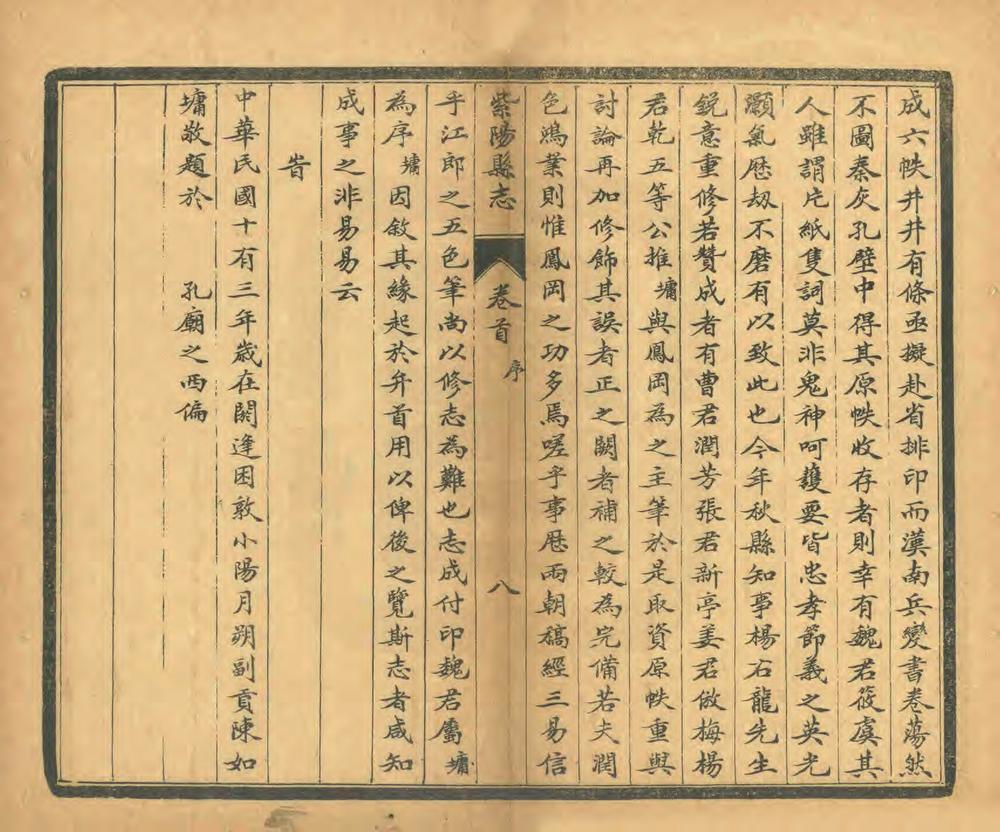 成六帙井井有條亟擬赴省排印而漢南兵變書卷蕩然
不圖秦灰孔壁中得其原帙收存者則幸有魏君筱虞其
人雖謂片紙隻詞莫非鬼神呵護要皆忠孝節義之英光
灝氣歷刼不磨有以致此也今年秋縣知事楊石龍先生
銳意重修若贊成者有曹君潤芳張君新亭姜君倣梅楊
君乾五等公推墉與鳳岡為之主筆於是取資原帙重與
討論再加修飾其誤者正之闕者補之較為完備若夫潤
色鴻業則惟鳳岡之功多焉嗟乎事歷兩朝稿經三易信
紫陽縣志 卷首 序 八
乎江郎之五色筆尚以修志為難也志成付印魏君屬墉
為序墉因敘其緣起於弁首用以俾後之覽斯志者咸知
成事之非易易云
旹
中華民國十有三年歲在閼逢困敦小陽月朔副貢陳如
墉敬題於 孔廟之西偏